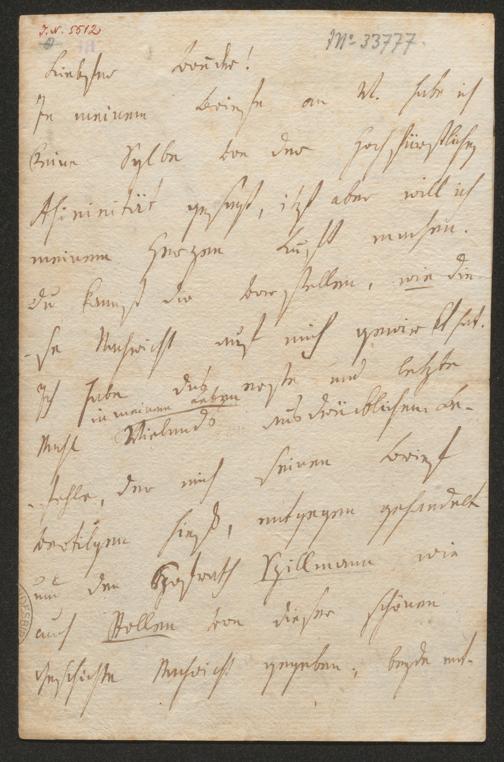 J. N. 5512
No 33777.
Liebster Bruder!
In meinem Briefe an W. habe ich
keine Sylbe von der Hochfürstlichen
gesagt, itzt aber will ich
meinem Herzen Luft machen.
Du kannst dir vorstellen, wie die-
se Nachricht auf mich gewirkt hat.
Ich habe das erste und letzte
in meinem Leben
Mahl Wielands ausdrücklichem Be-
fehle, der mich seinen Brief
vertilgen hieß, entgegen gehandelt
und den Hofrath Spillmann wie
auch Stollen von dieser schönen
Geschichte Nachricht gegeben; beyde ent-